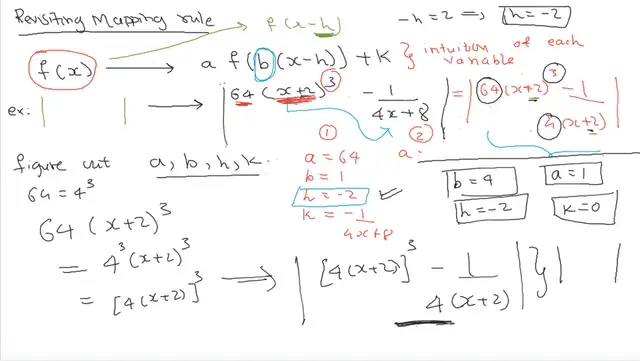 Revisiting Mapping rule
f(x-h)
-h=2 ⟹ h=-2
f(x) ⟶ a f(b(x-h)) + k } intuition of each variable
ex: | | ⟶ |64(x+2)^3 - 1/(4x+8)| = |64(x+2)^3 - 1/(4(x+2))|
figure out a, b, h, k.
① ②
a = 64 a =
b = 1
h = -2 ✓
k = -1/(4x+8)
b = 4 a = 1
h = -2 k = 0
64 = 4^3
64 (x+2)^3
= 4^3 (x+2)^3
= [4(x+2)]^3 ⟶ |[4(x+2)]^3 - 1/(4(x+2))| } | |